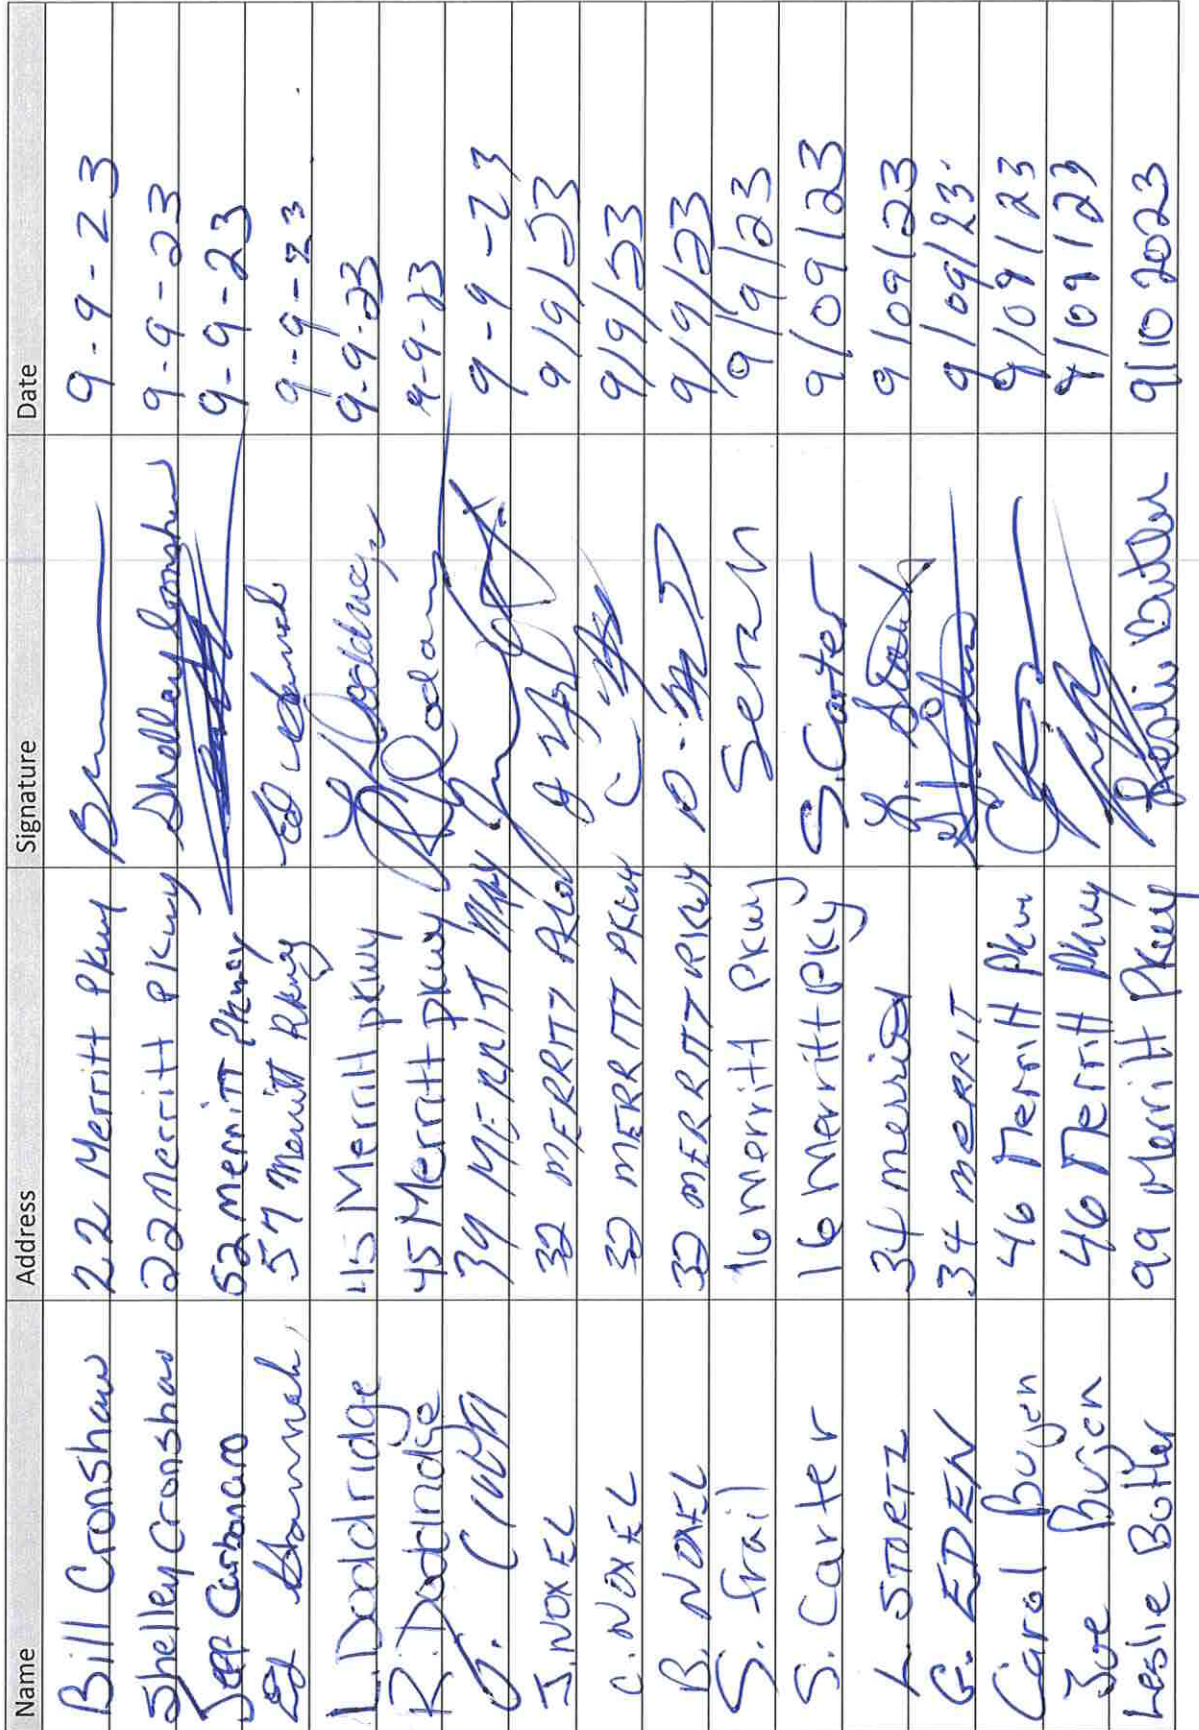 Name Address Signature Date
Bill Cronshaw 22 Merritt Pkwy 9-9-23
Shelley Cronshaw 22 Merritt PKwy Shelley Cronshaw 9-9-23
Carbonaro 52 Merritt Pkwy 9-9-23
Ed 57 Merritt Pkwy Ed 9-9-23
L. Doddridge 45 Merritt pkwy L Doddridge 9-9-23
R. Doddridge 45 Merritt pkwy 9-9-23
39 MERRITT PKWY 9-9-23
J. NOXEL 32 MERRITT 9/9/23
C. NOXEL 32 MERRITT PKWY 9/9/23
B. NOXEL 32 MERRITT PKWY 9/9/23
S. frail 16 Merritt Pkwy 9/9/23
S. Carter 16 Merritt PKy S. Carter 9/09/23
L. STORTZ 34 merritt 9/09/23
G. EDEN 34 MERRIT 9/09/23
Carol Bujen 46 Merritt Pkwy 9/09/23
Joe Bujen 46 Merritt Pkwy 9/09/23
Leslie Butler 99 Merritt Pkwy Leslie Butler 9/10 2023